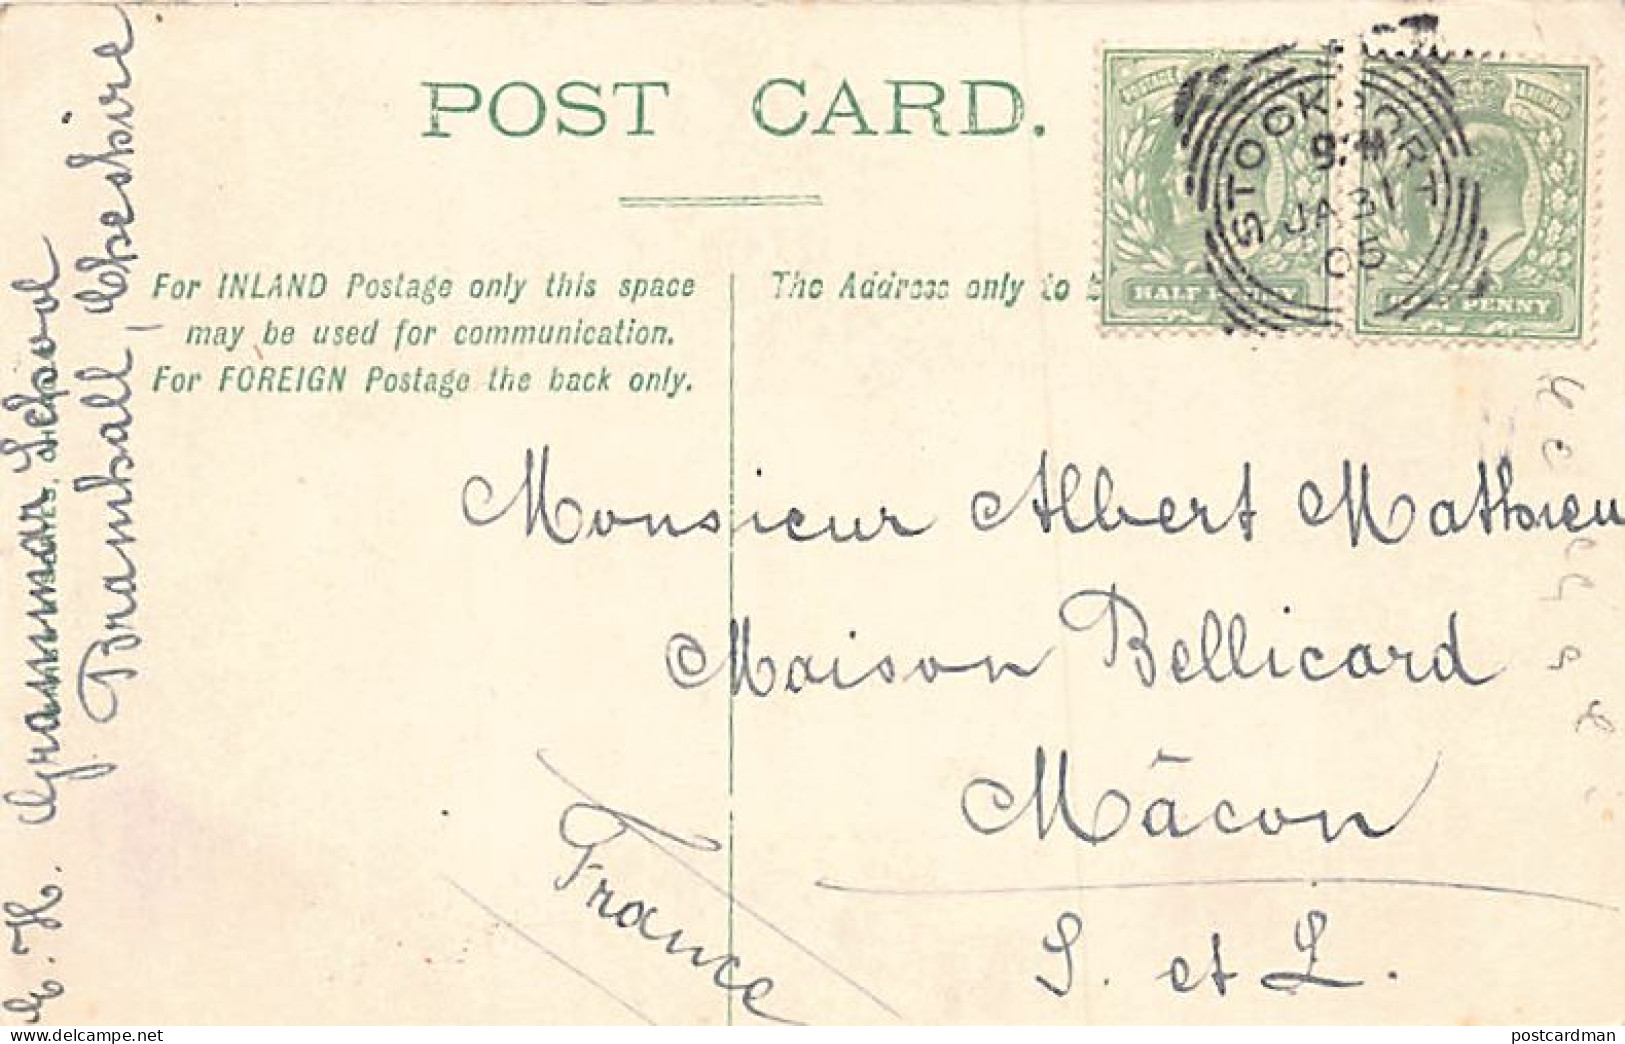 POST CARD.
For INLAND Postage only this space
may be used for communication.
For FOREIGN Postage the back only.
The Address only to
HALF PENNY
PENNY
STOCKPORT
JA 31
05
Monsieur Albert Mathieu
Maison Bellicard
Mâcon
S. et L.
France
H. Grammar School
Bramhall, Cheshire
postcardman